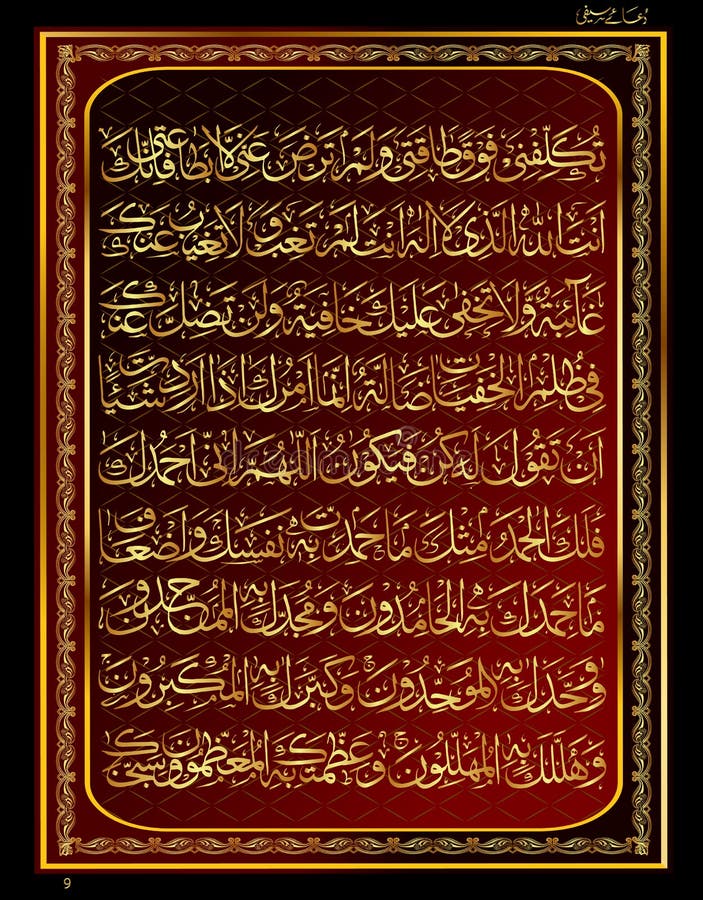 دعائے سیفی
تُكَلِّفْنِى فَوْقَ طَاقَتِى وَلَمْ تَرْضَ عَنِّى اِلَّا بِطَاعَتِى فَاِنَّكَ
اَنْتَ اللهُ الَّذِى لَا اِلٰهَ اِلَّا اَنْتَ لَمْ تَغِبْ وَلَا تَغِيْبُ عَنْكَ
غَآئِبَةٌ وَّلَا تَخْفٰى عَلَيْكَ خَافِيَةٌ وَلَنْ تَضِلَّ عَنْكَ
فِى ظُلَمِ الْخَفِيَّاتِ ضَالَّةٌ اِنَّمَا اَمْرُكَ اِذَا اَرَدْتَ شَيْئًا
اَنْ تَقُوْلَ لَهٗ كُنْ فَيَكُوْنُ اَللّٰهُمَّ اِنِّى اَحْمَدُكَ
فَلَكَ الْحَمْدُ مِثْلَ مَا حَمِدْتَ بِهٖ نَفْسَكَ وَاَضْعَافَ
مَا حَمِدَكَ بِهِ الْحَامِدُوْنَ وَمَجَّدَكَ بِهِ الْمُمَجِّدُوْنَ
وَوَحَّدَكَ بِهِ الْمُوَحِّدُوْنَ وَكَبَّرَكَ بِهِ الْمُكَبِّرُوْنَ
وَهَلَّلَكَ بِهِ الْمُهَلِّلُوْنَ وَعَظَّمَكَ بِهِ الْمُعَظِّمُوْنَ وَسَبَّحَكَ
9